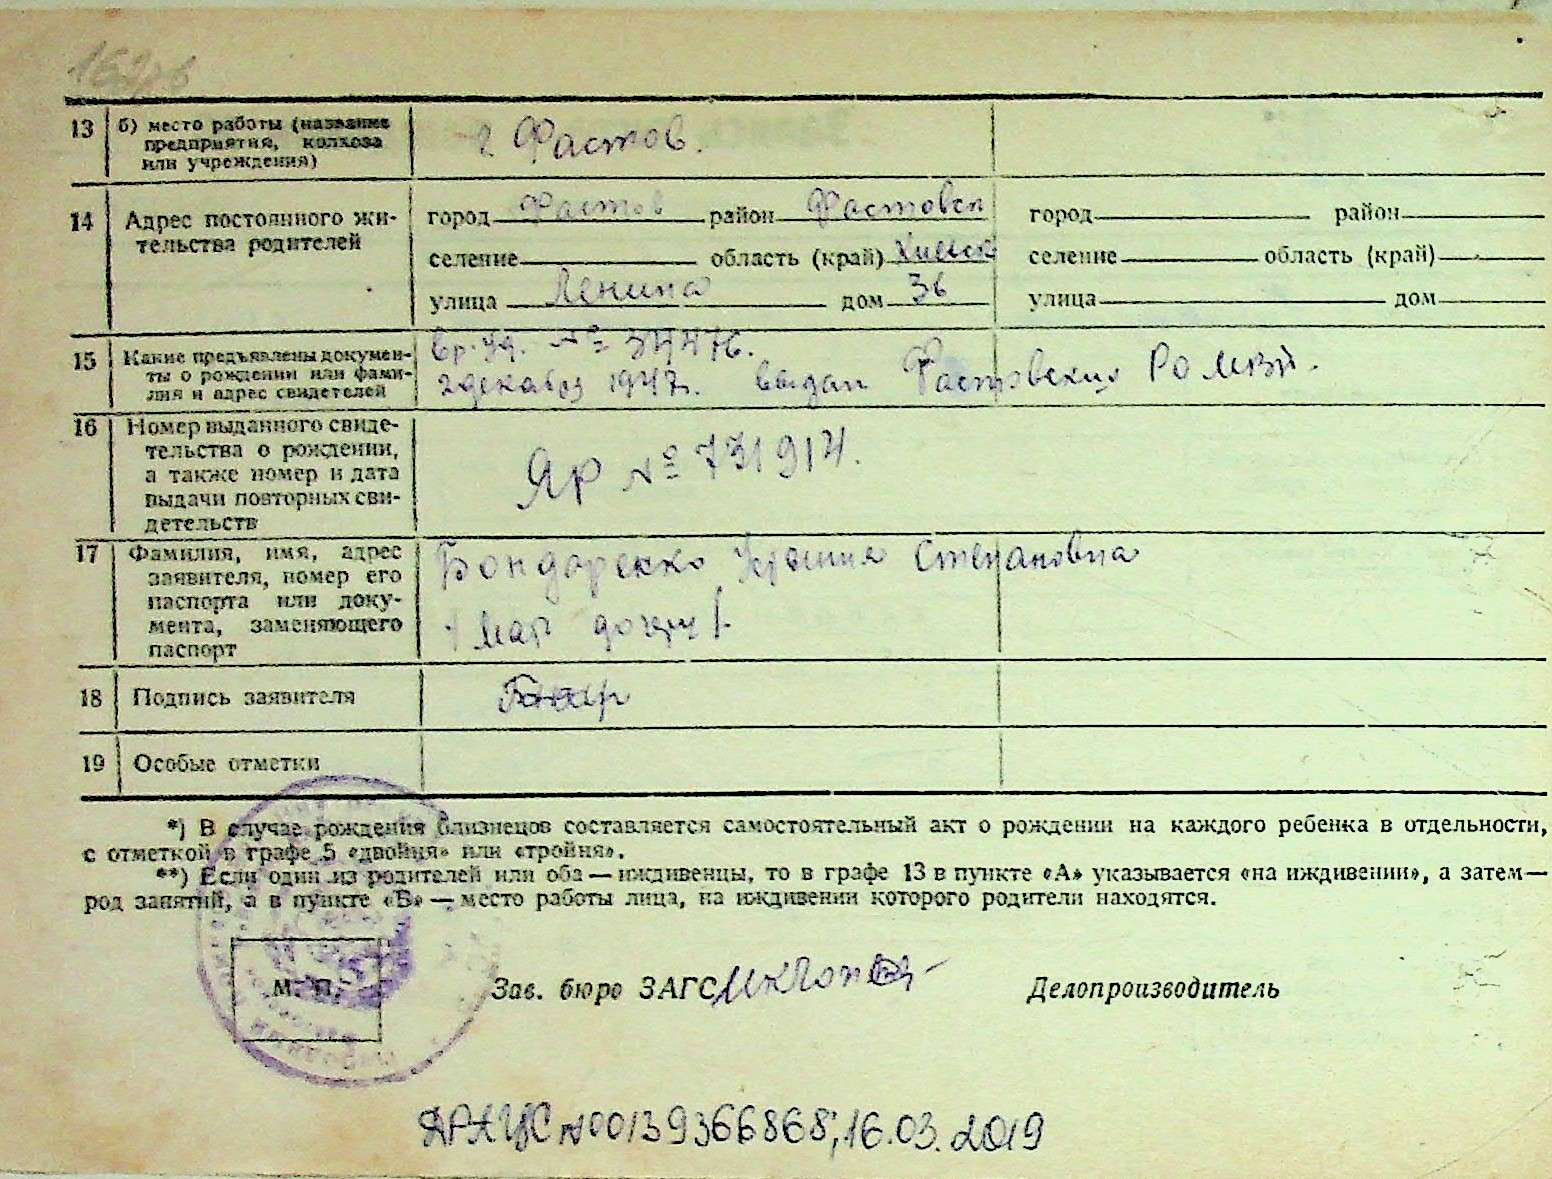 13 б) место работы (название
предприятия, колхоза
или учреждения)
г Фастов.
14 Адрес постоянного жи-
тельства родителей
город Фастов район Фастовск
селение область (край) Киевск
улица Ленина дом 36
город район
селение область (край)
улица дом
15 Какие предъявлены докумен-
ты о рождении или фами-
лия и адрес свидетелей
Вр. уд. №
2 декабря 1947г. выдан Фастовским РО МВД.
16 Номер выданного свиде-
тельства о рождении,
а также номер и дата
выдачи повторных сви-
детельств
ЯР № 731914.
17 Фамилия, имя, адрес
заявителя, номер его
паспорта или доку-
мента, заменяющего
паспорт
Бондаренко Степановна
18 Подпись заявителя
19 Особые отметки
*) В случае рождения близнецов составляется самостоятельный акт о рождении на каждого ребенка в отдельности,
с отметкой в графе 5 «двойня» или «тройня».
**) Если один из родителей или оба — иждивенцы, то в графе 13 в пункте «А» указывается «на иждивении», а затем —
род занятий, а в пункте «Б» — место работы лица, на иждивении которого родители находятся.
М. П.
Зав. бюро ЗАГС
Делопроизводитель
ДРАЦС №00139366868; 16.03.2019